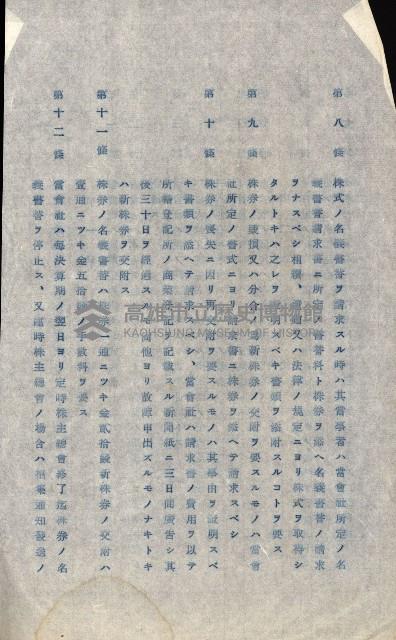 第八條 株式ノ名義書替ヲ請求スル時ハ其當事者ハ當會社所定ノ名
義書替請求書ニ所定ノ書替料ト株券ヲ添ヘ名義書替ノ請求
ヲナスベシ相續、遺贈又ハ法律ノ規定ニヨリ株式ヲ取得シ
タルトキハ之レヲ證明スベキ書類ヲ添附スルコトヲ要ス
第九條 株券ノ毀損又ハ分合ノ爲新株券ノ交附ヲ要スルモノハ當會
社所定ノ書式ニヨリ請求書ニ株券ヲ添ヘテ請求スベシ
第十條 株券ノ喪失ニ因リ再交附ヲ要スルモノハ其事由ヲ証明スベ
キ書類ヲ添ヘテ請求スベシ、當會社ハ請求者ノ費用ヲ以テ
所轄登記所ノ商業登記ヲ記載スル新聞紙ニ三日間廣告シ其
後三十日ヲ經過スルモ尚他ヨリ故障申出ズルモノナキトキ
ハ新株券ヲ交附ス
第十一條 株券ノ名義書替ハ株券一通ニツキ金貳拾錢新株券ノ交附ハ
壹通ニツキ金五拾錢ノ手數料ヲ要ス
第十二條 當會社ハ每決算期ノ翌日ヨリ定時株主總會終了迄株券ノ名
義書替ヲ停止ス、又臨時株主總會ノ場合ハ招集通知發送ノ
高雄市立歷史博物館
KAOHSIUNG MUSEUM OF HISTORY